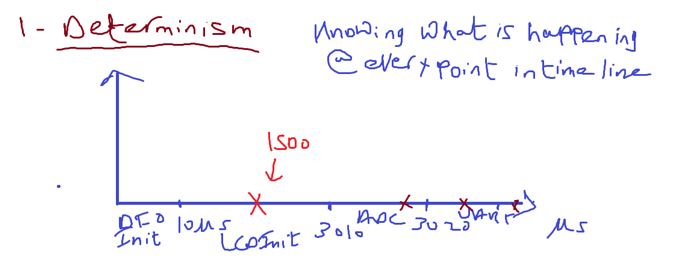 1 - Determinism
Knowing what is happening
@ every point in time line
1500
DIO
Init
10 µs
LCD Init
3010
ADC
3020
µs